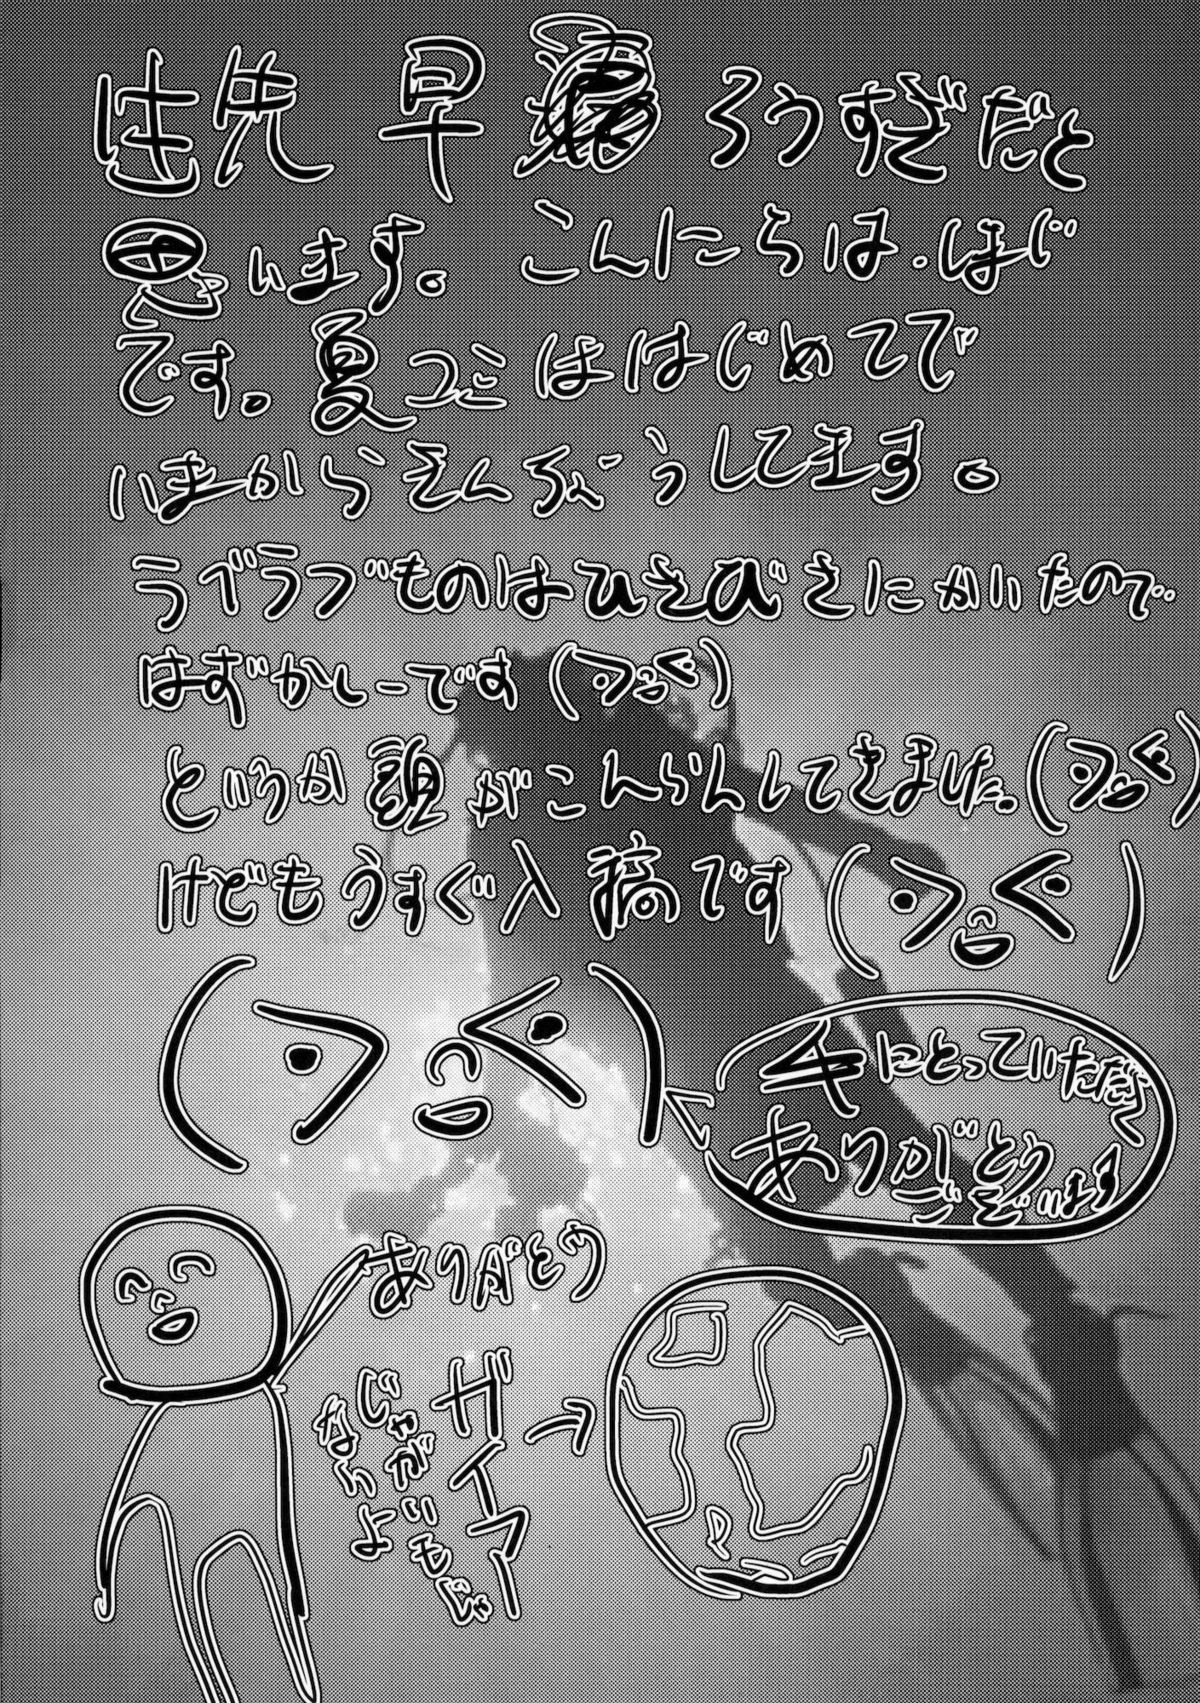 早 ろうすぎだと
思います。 こんにちは。はじ
です。夏コミははじめてで
いまからぞんぶうしてます。
ラブラブものはひさびさにかいたので
はずかしーです
というか頭がこんらんしてきました。
けどもうすぐ入稿です
手にとっていただき
ありがとう
ございます
ありがとう
ガイアー
じゃがいもじゃ
ないよ